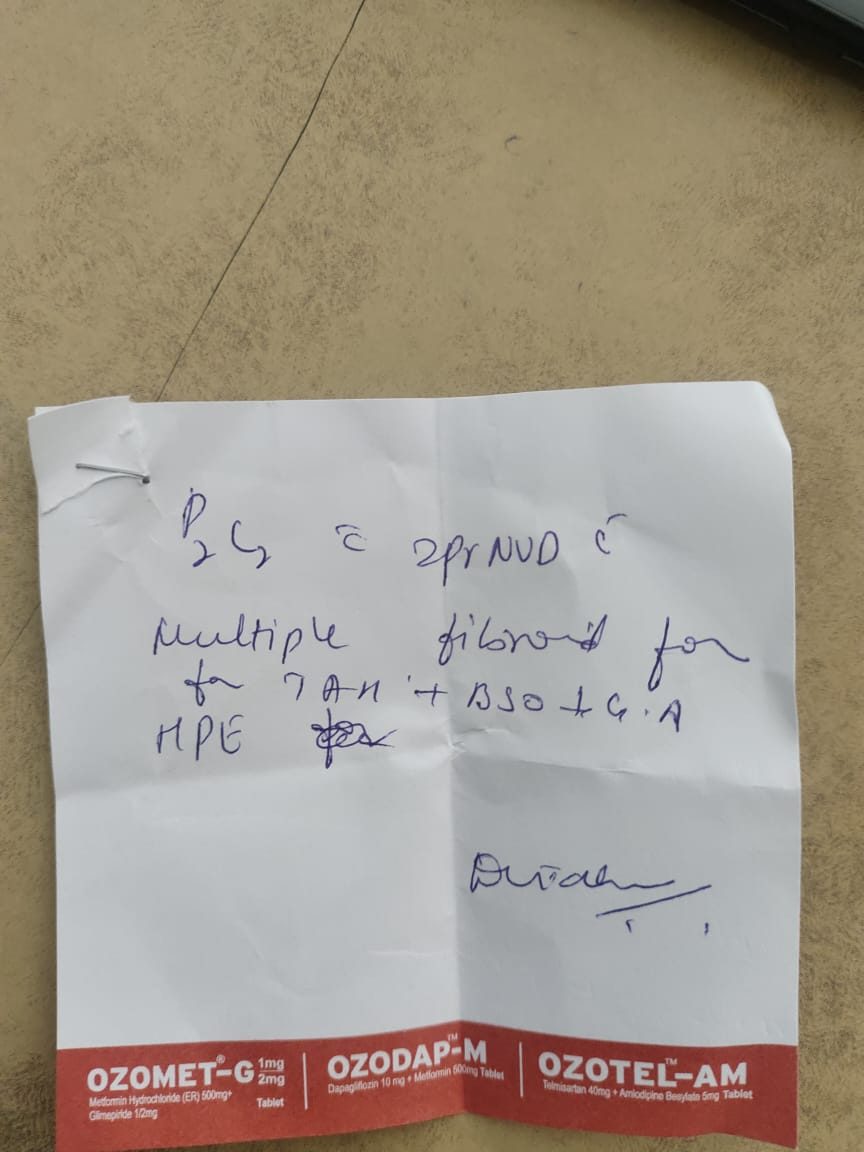 P2 L2 c̄ 2 pr NVD c̄
Multiple fibroid for
for TAH + BSO ↓ G.A
HPE
OZOMET®-G 1mg 2mg
Metformin Hydrochloride (ER) 500mg+
Glimepiride 1/2mg Tablet
OZODAP™-M
Dapagliflozin 10 mg + Metformin 500mg Tablet
OZOTEL™-AM
Telmisartan 40mg + Amlodipine Besylate 5mg Tablet